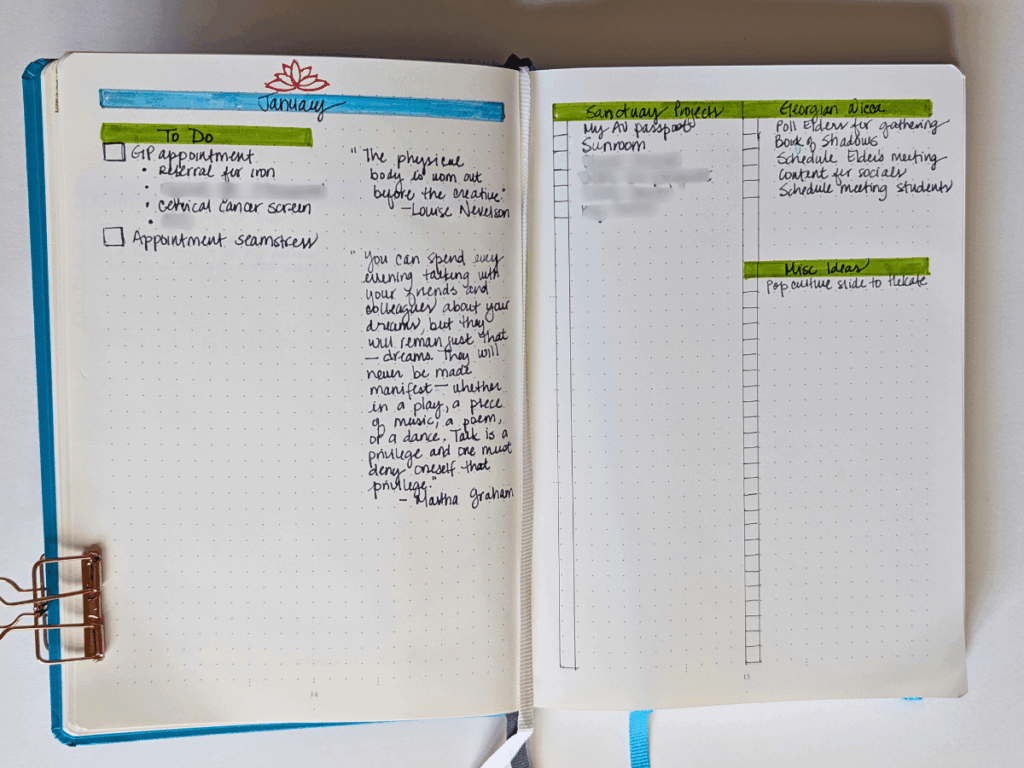 January
To Do
GP appointment
• Referral for iron
•
• cervical cancer screen
•
Appointment seamstress
"The physical
body is worn out
before the creative."
—Louise Nevelson
"You can spend every
evening talking with
your friends and
colleagues about your
dreams, but they
will remain just that
—dreams. They will
never be made
manifest—whether
in a play, a piece
of music, a poem,
or a dance. Talk is a
privilege and one must
deny oneself that
privilege."
- Martha Graham
14
Sanctuary Projects
My AU passport
Sunroom
Georgian Wicca
Poll Elders for gathering
Book of Shadows
Schedule Elders meeting
Content for socials
Schedule meeting students
Misc Ideas
Pop culture slide to Hekate
15